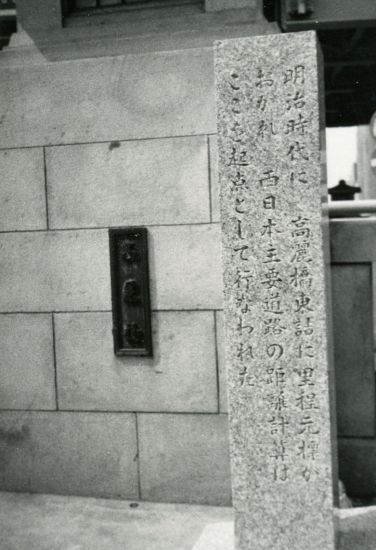 明治時代に 高麗橋東詰に里程元標が
おかれ 西日本主要道路の距離計算は
ここを起点として行なわれた